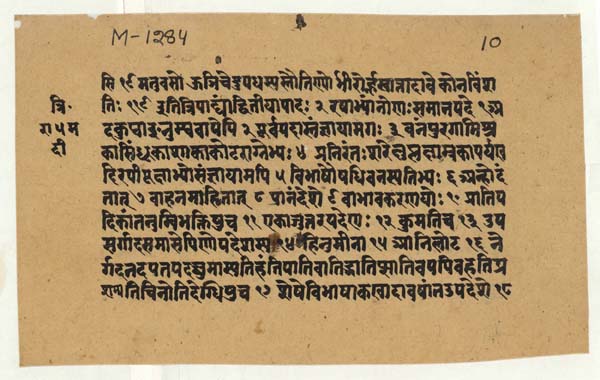 M-1284
10
सि १८ मतुवसो ऊञिचेदुपधस्यस्तौतिण्यो भीरोर्ह्रस्वात्तादावेकोनविंश
त्रि·
तिः १९ इतित्रिपाद्यांद्वितीयपादः २ रषाभ्यांनोणःसमानपदे १ अ
टकुप्वाङ्नुम्व्यवायेपि २ पूर्वपदात्संज्ञायामगः ३ वनंपुरगामिश्र
दी
कासिध्रकाकोटराग्रेभ्यः ४ प्रनिरंतःशरेक्षुप्लक्षाम्रकार्ष्यख
दिरपीयूक्षाभ्योसंज्ञायामपि ५ विभाषौषधिवनस्पतिभ्यः ६ अह्नोदं
तात् ७ वाहनमाहितात् ८ पानंदेशे ९ वाभावकरणयोः १० प्रातिप
दिकांतनुम्विभक्तिषुच ११ एकाजुत्तरपदेणः १२ कुमतिच १३ उप
सर्गादसमासेपिणोपदेशस्य १४ हिनुमीना १५ आनिलोट् १६ ने
र्गदनदपतपदघुमास्यतिहंतियातिवातिद्रातिप्सातिवपतिवहतिश
शाम्यतिचिनोतिदेग्धिषुच १७ शेषेविभाषाकखादावषांतउपदेशे १८